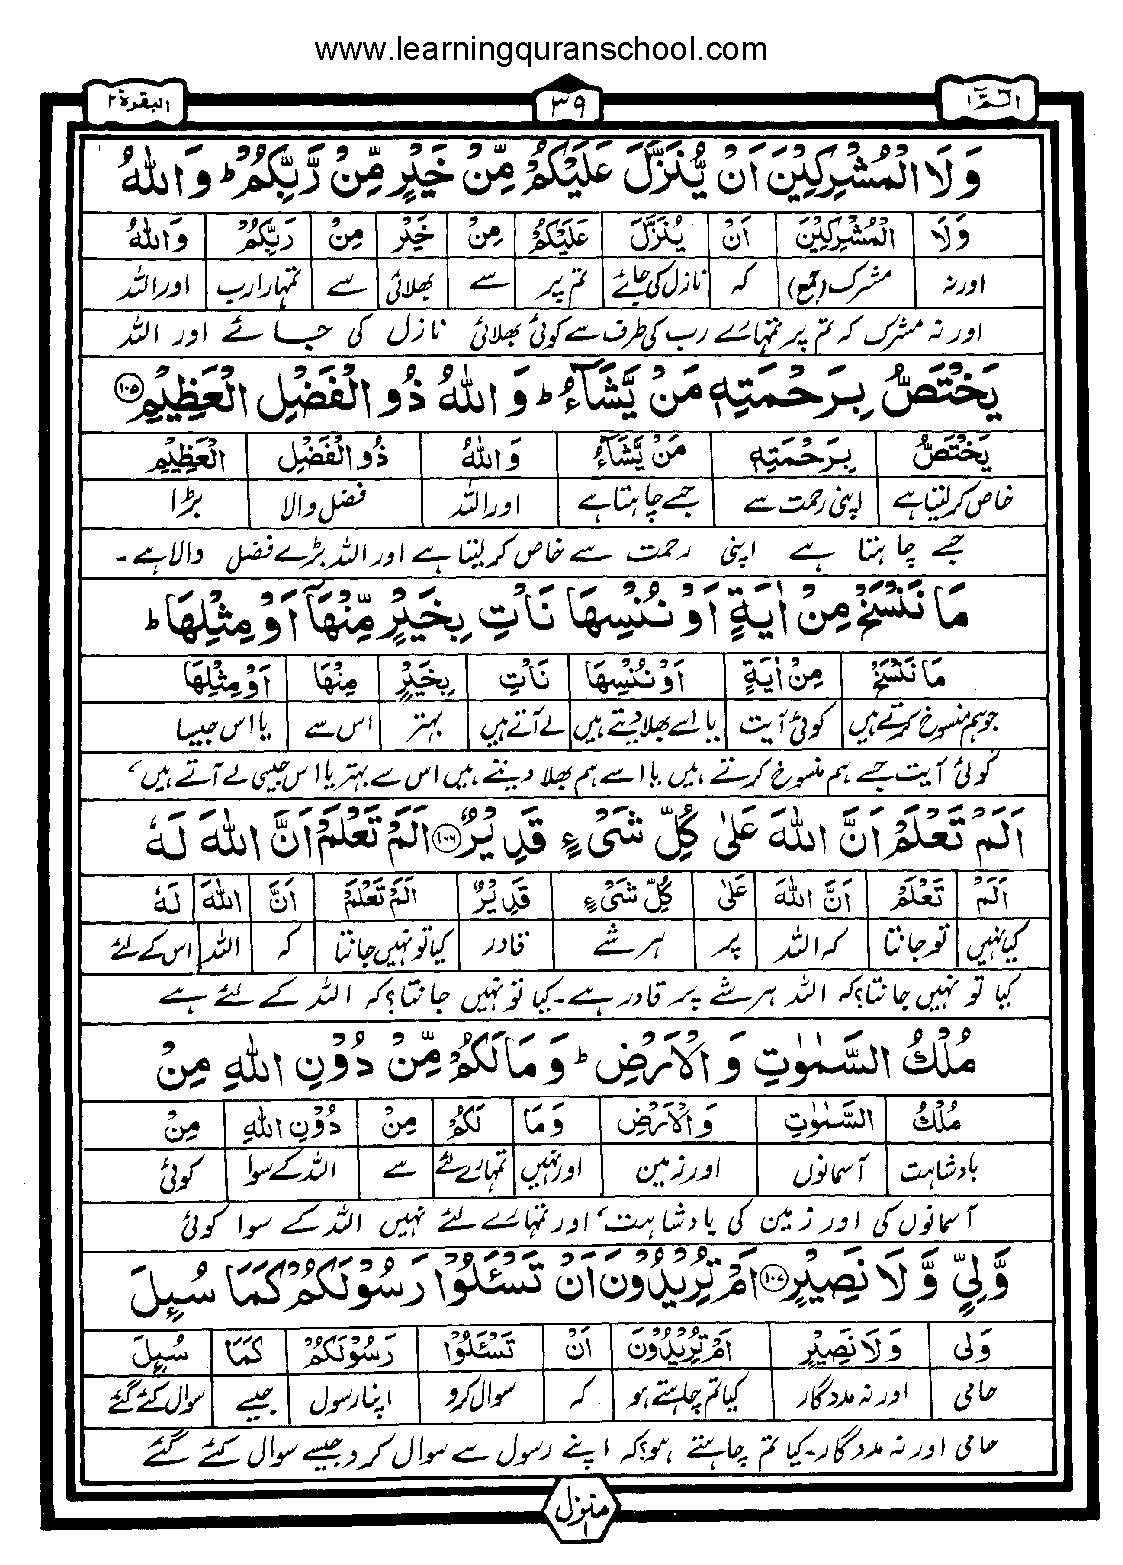 www.learningquranschool.com
الٓمّٓ ١ ٣٩ البقرة ٢
وَلَا الْمُشْرِكِيْنَ اَنْ يُّنَزَّلَ عَلَيْكُمْ مِّنْ خَيْرٍ مِّنْ رَّبِّكُمْ ؕ وَاللّٰهُ
وَلَا الْمُشْرِكِيْنَ اَنْ يُنَزَّلَ عَلَيْكُمْ مِنْ خَيْرٍ مِنْ رَبِّكُمْ وَاللّٰهُ
اور نہ مشرک (جمع) کہ نازل کی جائے تم پر سے بھلائی سے تمہارا رب اور اللہ
اور نہ مشرک کہ تم پر تمہارے رب کی طرف سے کوئی بھلائی نازل کی جائے اور اللہ
يَخْتَصُّ بِرَحْمَتِهٖ مَنْ يَّشَآءُ ؕ وَاللّٰهُ ذُو الْفَضْلِ الْعَظِيْمِ ۝١٠٥
يَخْتَصُّ بِرَحْمَتِهٖ مَنْ يَّشَآءُ وَاللّٰهُ ذُو الْفَضْلِ الْعَظِيْمِ
خاص کر لیتا ہے اپنی رحمت سے جسے چاہتا ہے اور اللہ فضل والا بڑا
جسے چاہتا ہے اپنی رحمت سے خاص کر لیتا ہے اور اللہ بڑے فضل والا ہے۔
مَا نَنْسَخْ مِنْ اٰيَةٍ اَوْ نُنْسِهَا نَاْتِ بِخَيْرٍ مِّنْهَآ اَوْ مِثْلِهَا ؕ
مَا نَنْسَخْ مِنْ اٰيَةٍ اَوْ نُنْسِهَا نَاْتِ بِخَيْرٍ مِنْهَا اَوْ مِثْلِهَا
جو ہم منسوخ کرتے ہیں کوئی آیت یا اسے بھلا دیتے ہیں لے آتے ہیں بہتر اس سے یا اس جیسا
کوئی آیت جسے ہم منسوخ کرتے ہیں یا اسے ہم بھلا دیتے ہیں اس سے بہتر یا اس جیسی لے آتے ہیں،
اَلَمْ تَعْلَمْ اَنَّ اللّٰهَ عَلٰى كُلِّ شَىْءٍ قَدِيْرٌ ۝١٠٦ اَلَمْ تَعْلَمْ اَنَّ اللّٰهَ لَهٗ
اَلَمْ تَعْلَمْ اَنَّ اللّٰهَ عَلٰى كُلِّ شَىْءٍ قَدِيْرٌ اَلَمْ تَعْلَمْ اَنَّ اللّٰهَ لَهٗ
کیا نہیں تو جانتا کہ اللہ پر ہر شے قادر کیا تو نہیں جانتا کہ اللہ اس کے لئے
کیا تو نہیں جانتا؟ کہ اللہ ہر شے پر قادر ہے۔ کیا تو نہیں جانتا؟ کہ اللہ کے لئے ہے
مُلْكُ السَّمٰوٰتِ وَ الْاَرْضِ ؕ وَمَا لَكُمْ مِّنْ دُوْنِ اللّٰهِ مِنْ
مُلْكُ السَّمٰوٰتِ وَالْاَرْضِ وَمَا لَكُمْ مِنْ دُوْنِ اللّٰهِ مِنْ
بادشاہت آسمانوں اور زمین اور نہیں تمہارے لئے سے اللہ کے سوا کوئی
آسمانوں کی اور زمین کی بادشاہت، اور تمہارے لئے نہیں اللہ کے سوا کوئی
وَّلِيٍّ وَّ لَا نَصِيْرٍ ۝١٠٧ اَمْ تُرِيْدُوْنَ اَنْ تَسْـَٔلُوْا رَسُوْلَكُمْ كَمَا سُىِٕلَ
وَلِى وَلَا نَصِيْرٍ اَمْ تُرِيْدُوْنَ اَنْ تَسْـَٔلُوْا رَسُوْلَكُمْ كَمَا سُىِٕلَ
حامی اور نہ مددگار کیا تم چاہتے ہو کہ سوال کرو اپنا رسول جیسے سوال کئے گئے
حامی اور نہ مددگار۔ کیا تم چاہتے ہو؟ کہ اپنے رسول سے سوال کرو جیسے سوال کئے گئے
منزل ١